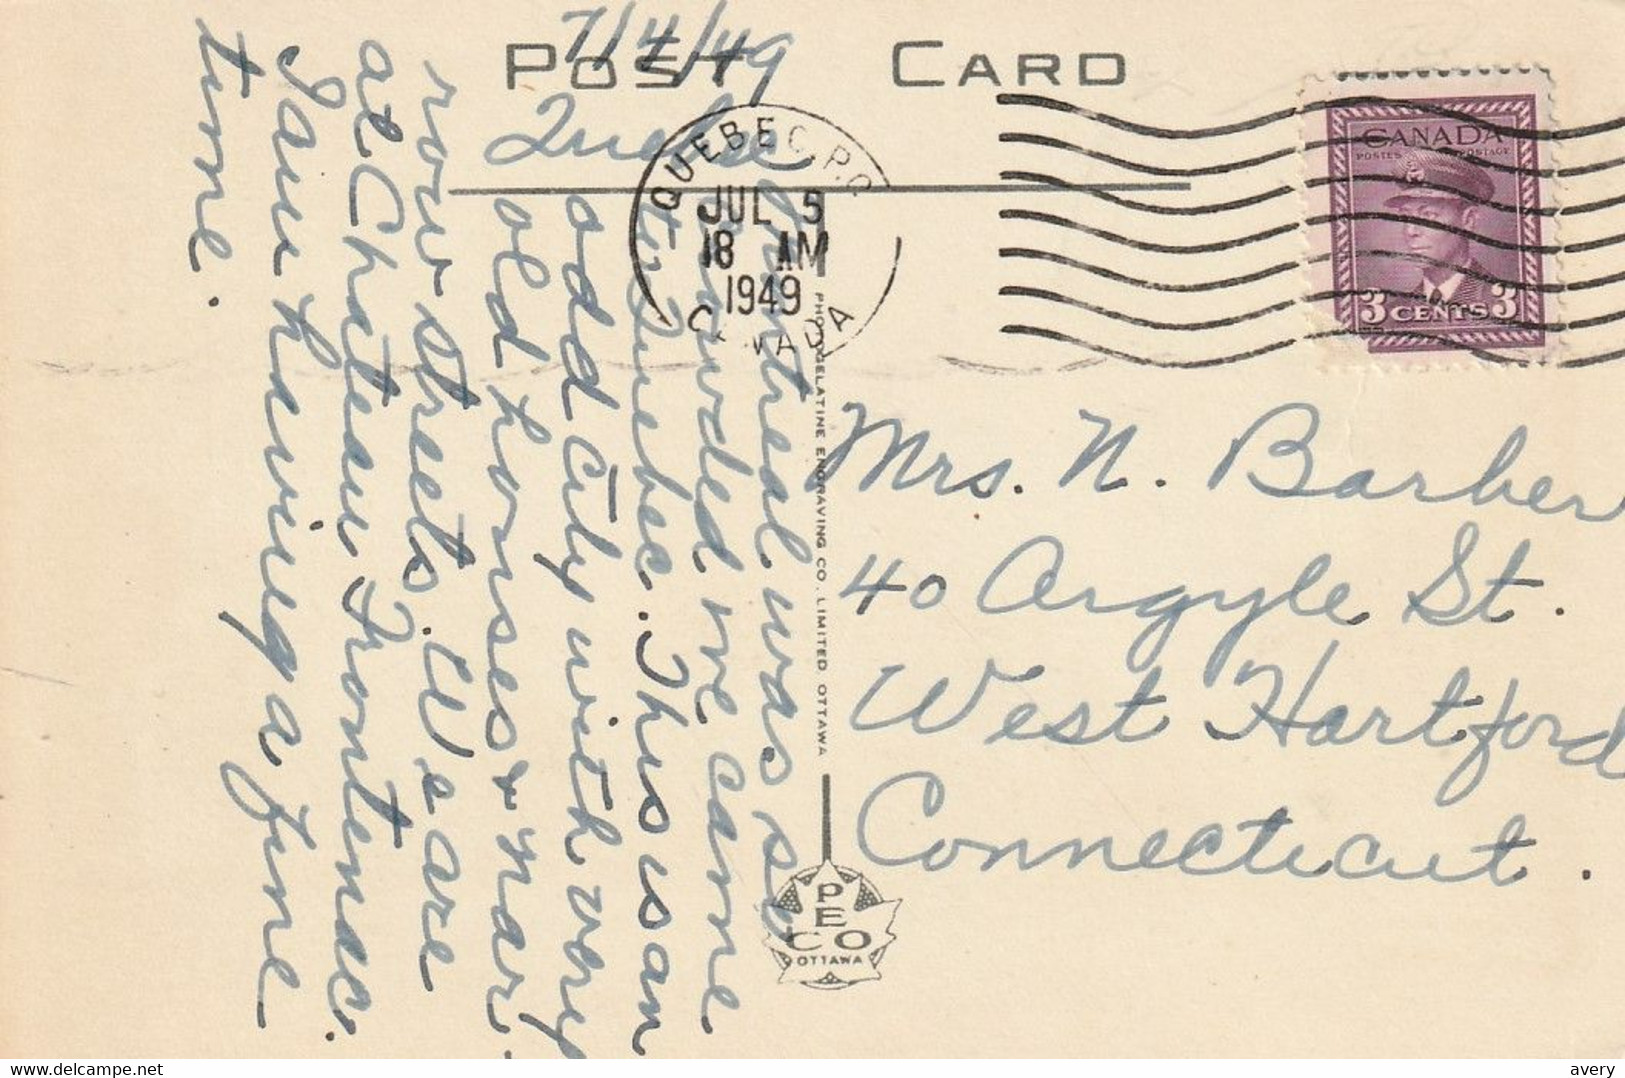 POST CARD
7/4/49
Quebec
Montreal was so
crowded we came
to Quebec. This is an
odd city with very
old houses & nar-
row streets. We are
at Chateau Frontenac.
I am having a fine
time.
QUEBEC, P.Q.
JUL 5
18 AM
1949
CANADA
CANADA
POSTES POSTAGE
3 CENTS 3
PHOTOGELATINE ENGRAVING CO. LIMITED. OTTAWA
PECO
OTTAWA
Mrs. N. Barber
40 Argyle St.
West Hartford
Connecticut.
delcampe.net
avery